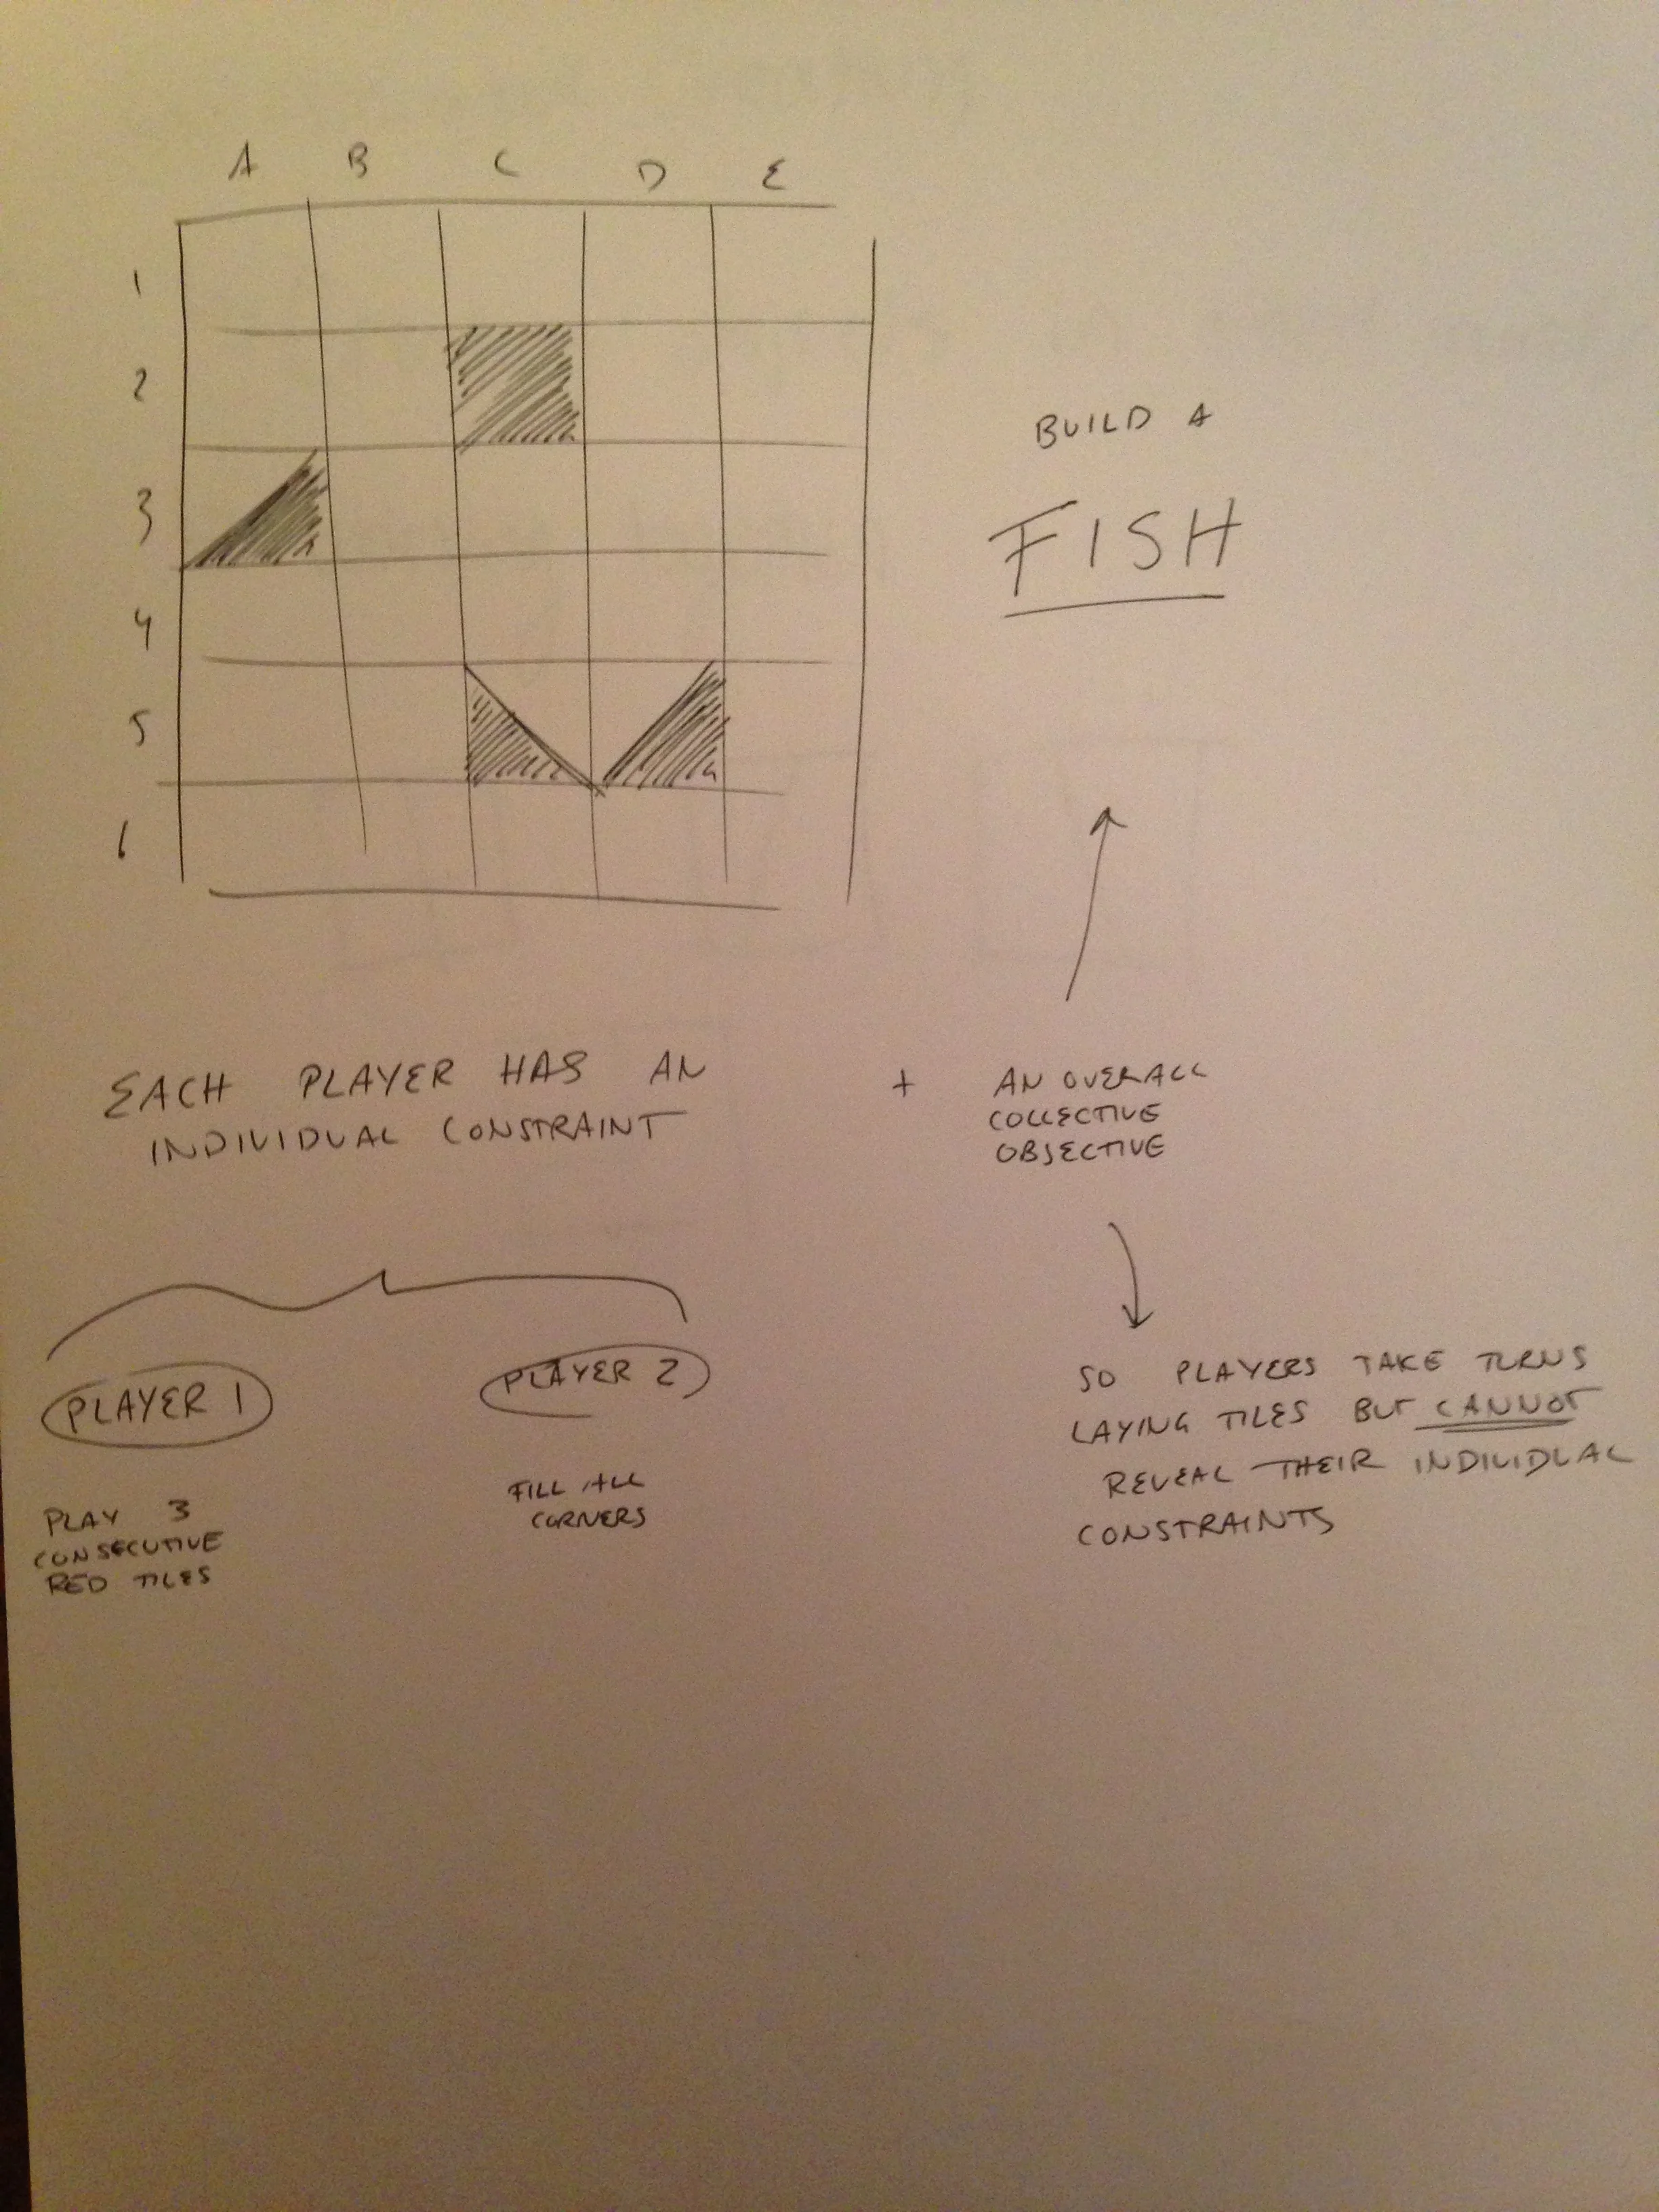 A B C D E
1
2
3
4
5
6
BUILD A
FISH
EACH PLAYER HAS AN
INDIVIDUAL CONSTRAINT
+
AN OVERALL
COLLECTIVE
OBJECTIVE
PLAYER 1
PLAY 3
CONSECUTIVE
RED TILES
PLAYER 2
FILL ALL
CORNERS
SO PLAYERS TAKE TURNS
LAYING TILES BUT CANNOT
REVEAL THEIR INDIVIDUAL
CONSTRAINTS